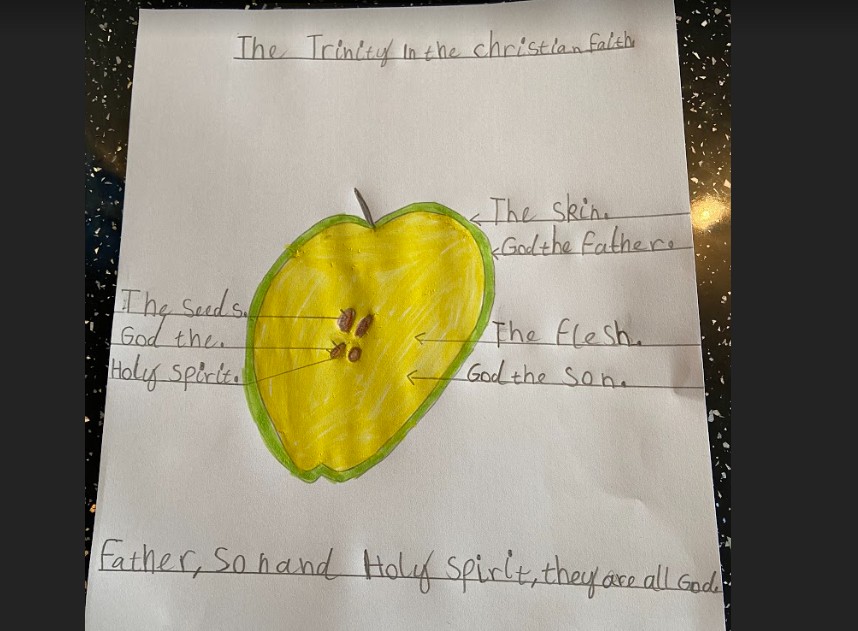 The Trinity in the christian faith
The skin.
God the father.
The seeds.
God the.
Holy spirit.
The flesh.
God the son.
Father, Son and Holy spirit, they are all God.